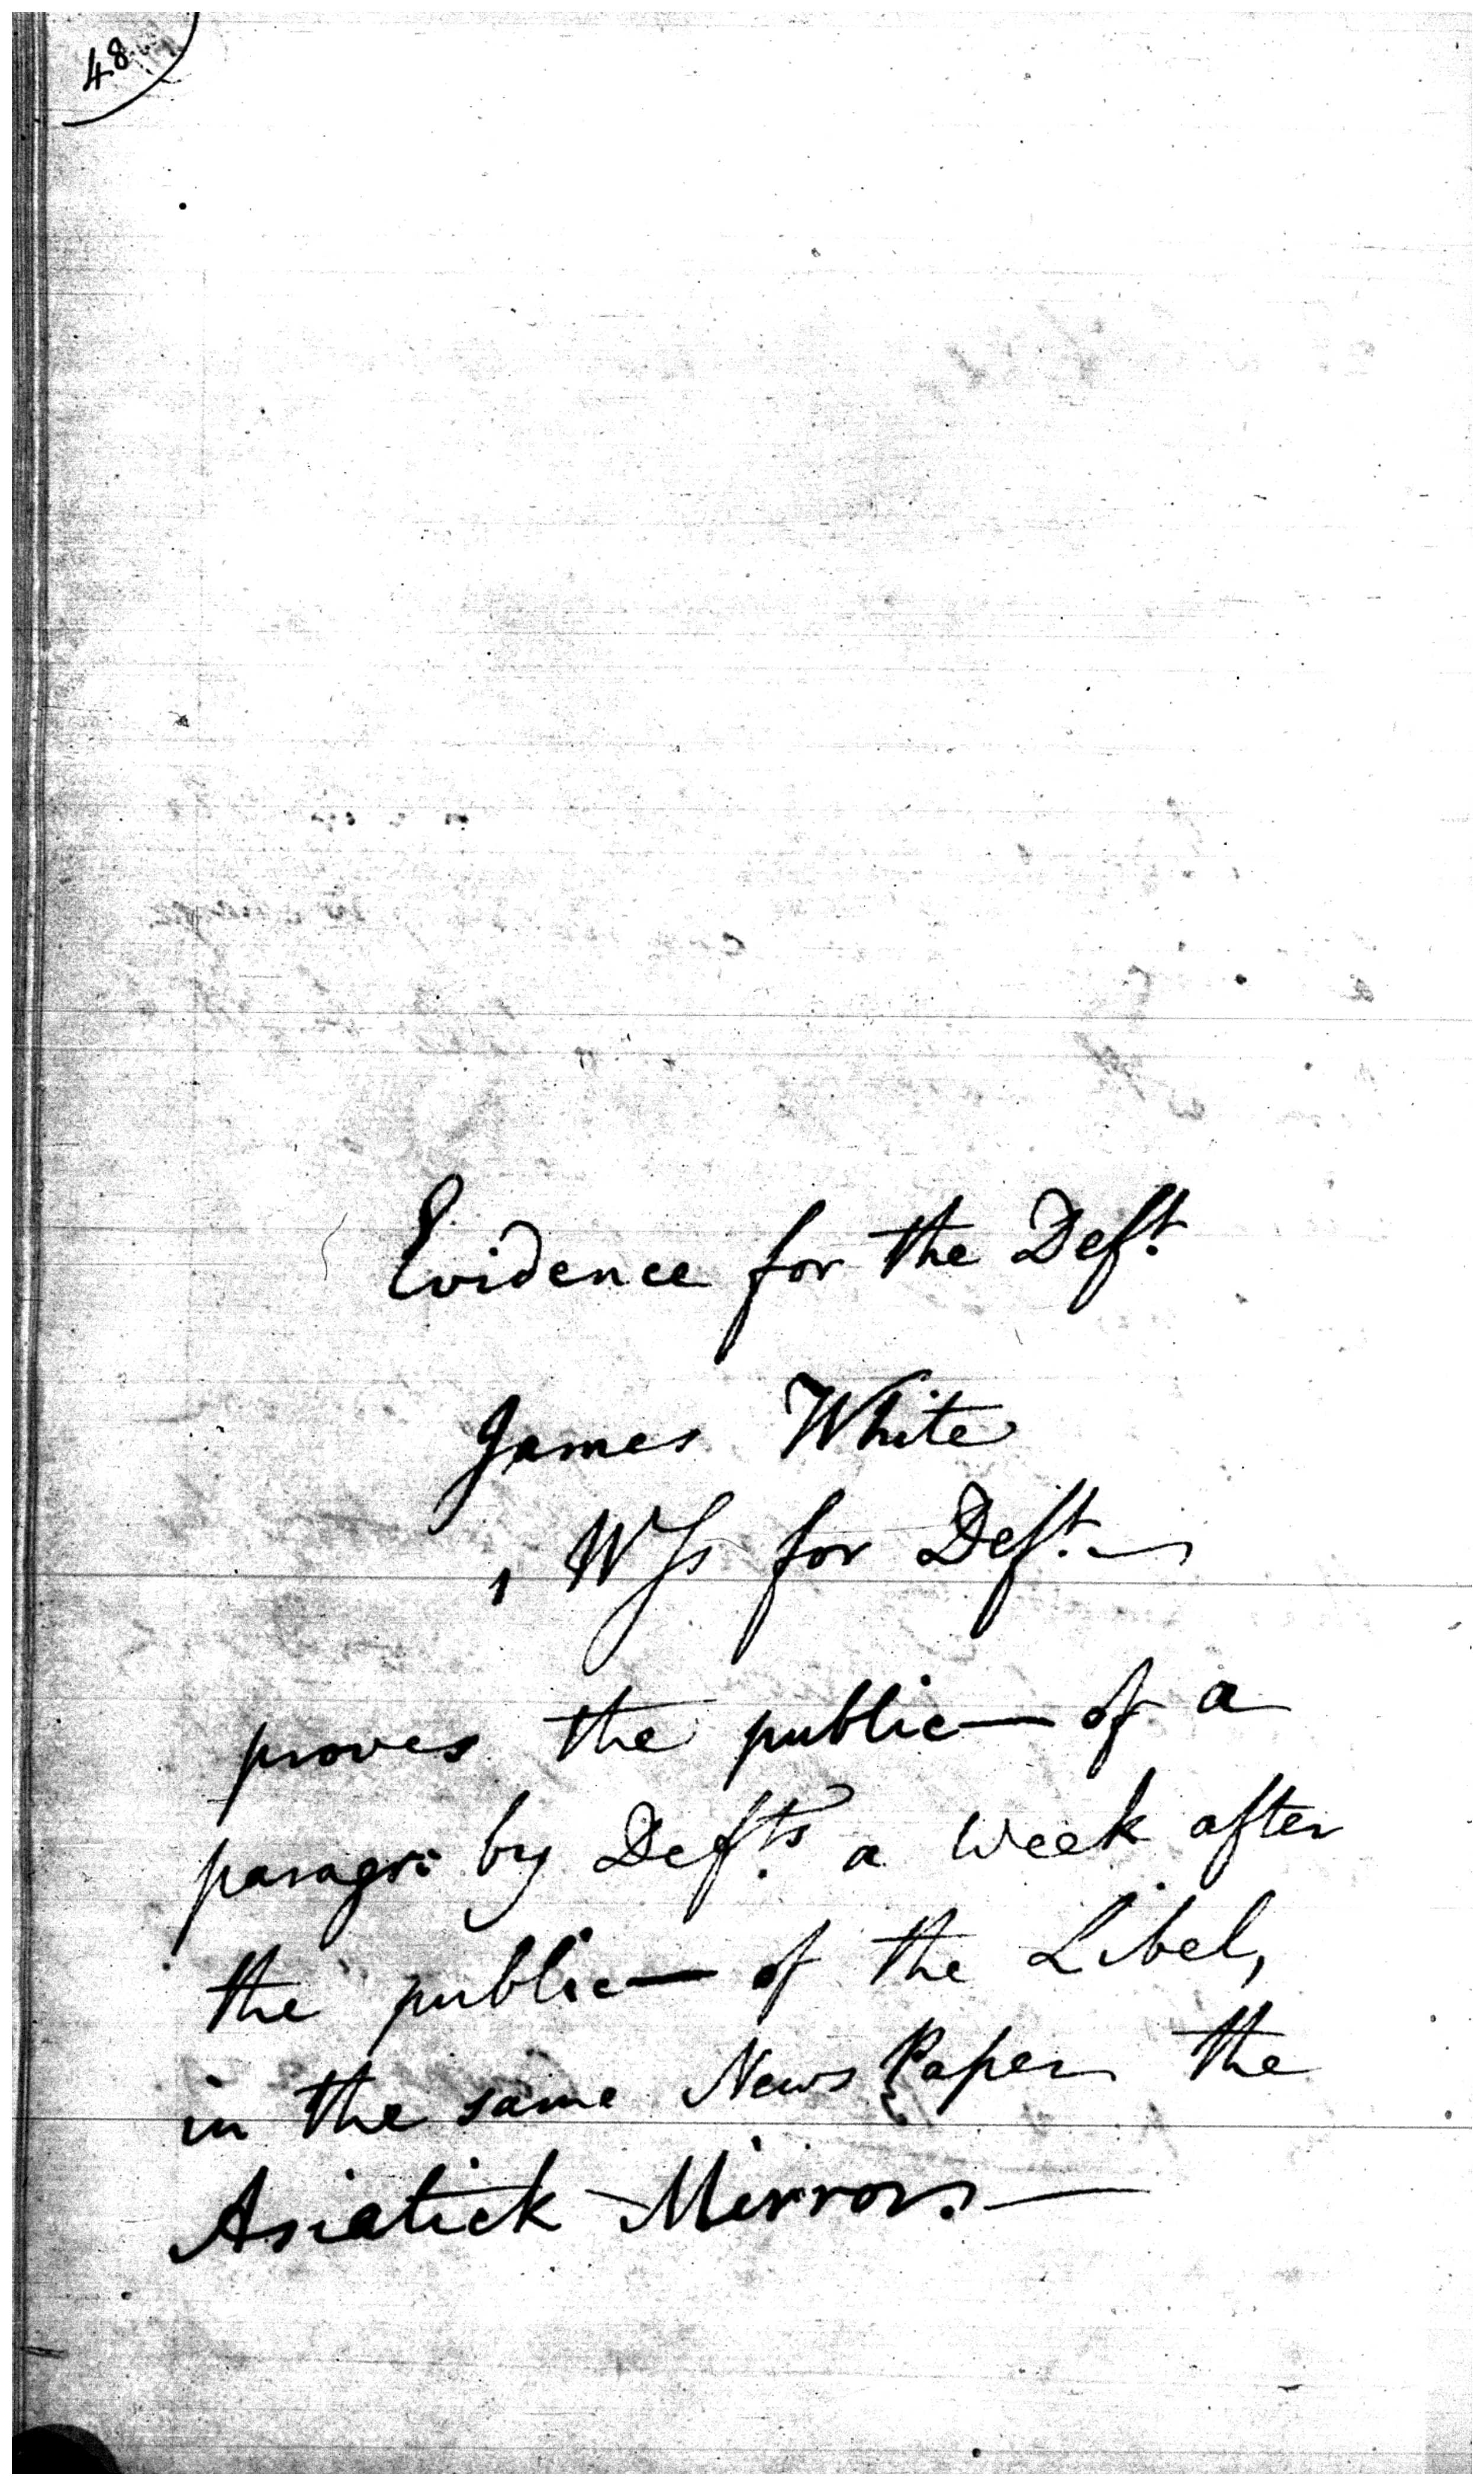 48
Evidence for the Deft.
James White
1 Wss for Deft. —
proves the public— of a
paragr: by Defts. a week after
the public— of the Libel,
in the same News Paper the
Asiatick Mirror. —